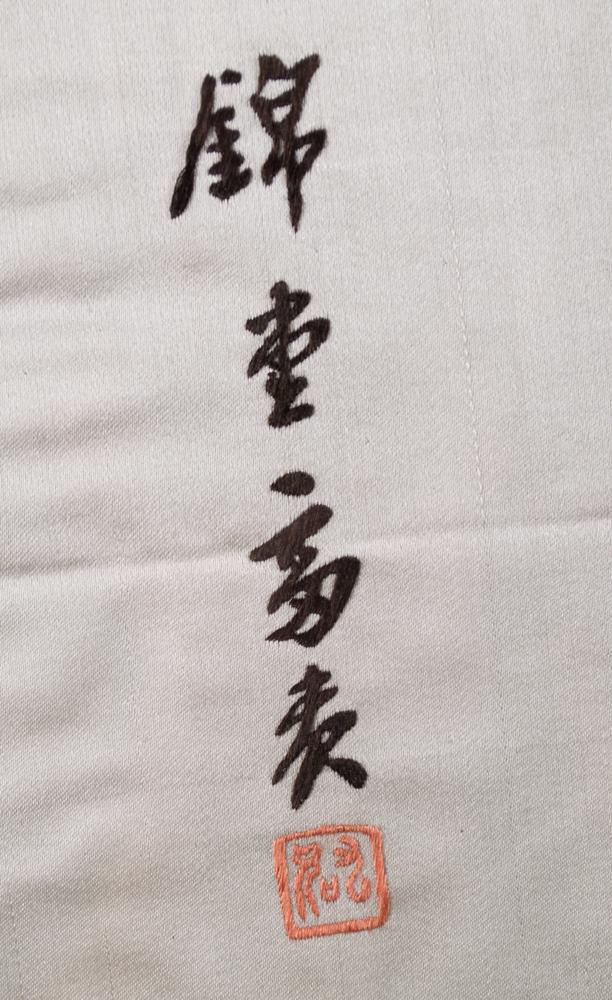 錦堂富貴